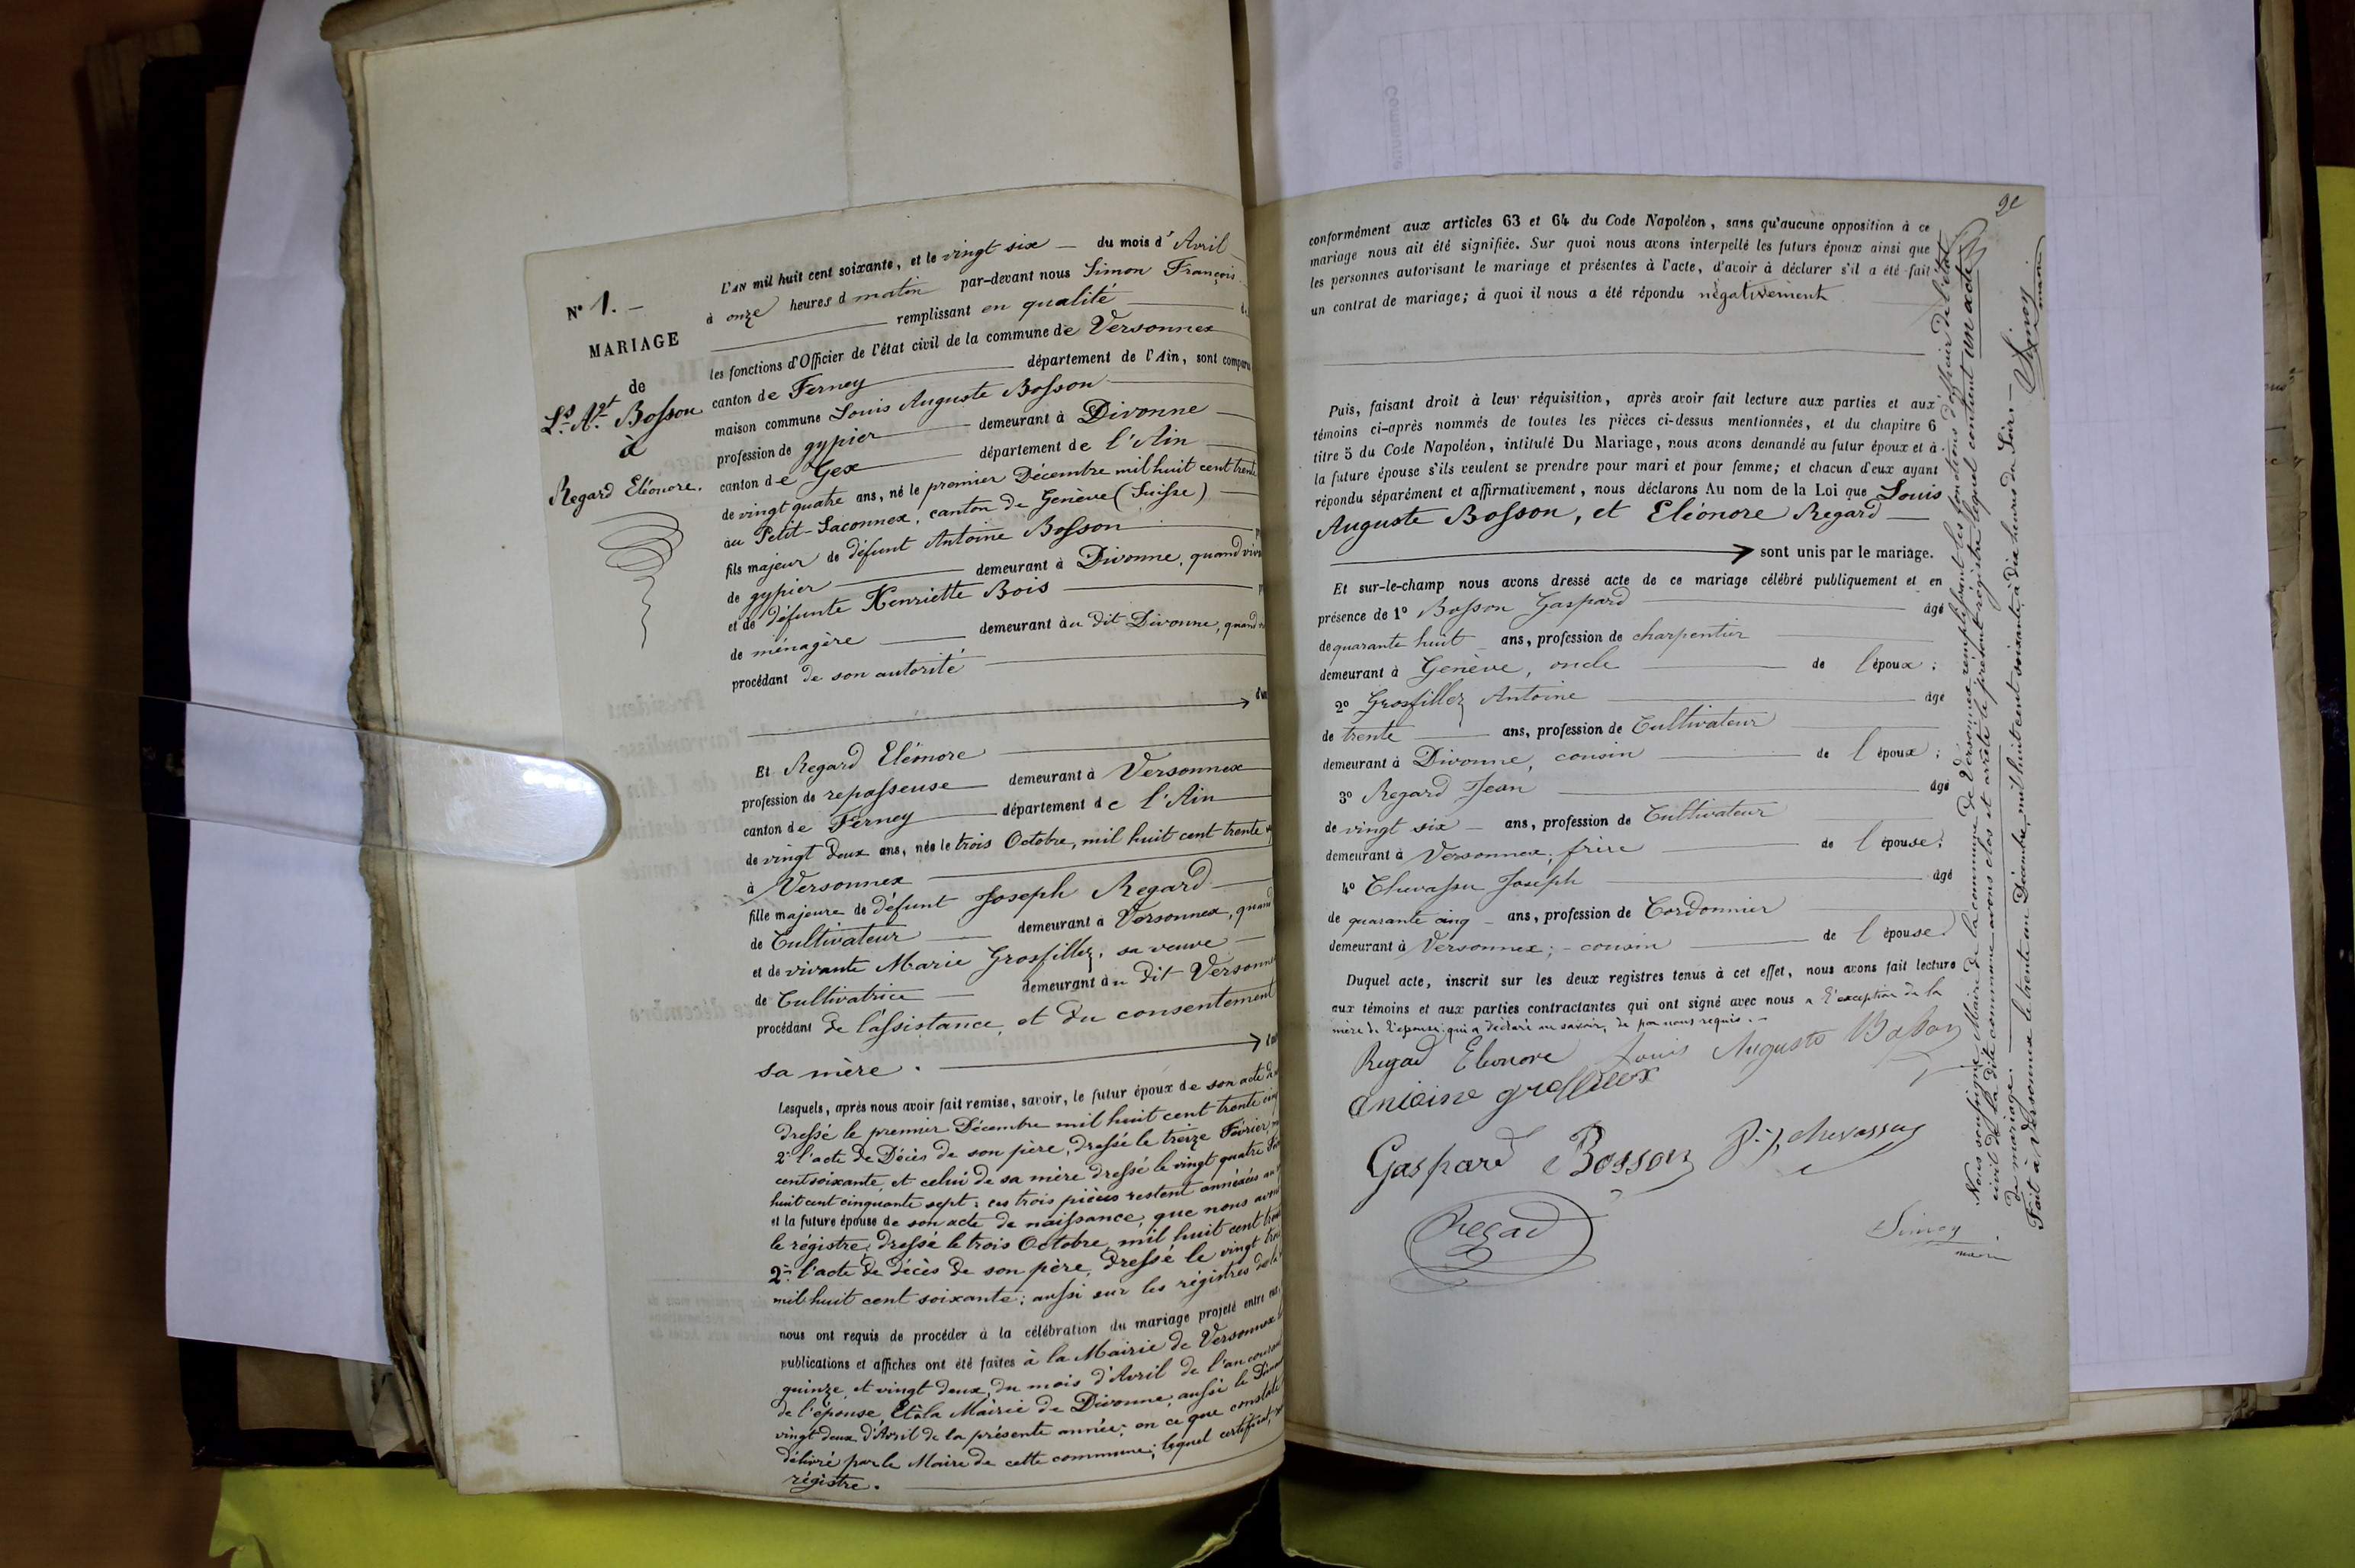 N° 1. –
MARIAGE
de
Ls. Agt. Bosson
à
Regard Eléonore.
L'AN mil huit cent soixante, et le vingt six — du mois d'Avril
à onze heures d matin par-devant nous Simon François
remplissant en qualité
les fonctions d'Officier de l'état civil de la commune de Versonnex
canton de Ferney département de l'Ain, sont comparu
maison commune Louis Auguste Bosson
profession de gypier demeurant à Divonne
canton de Gex département de l'Ain
de vingt quatre ans, né le premier Décembre mil huit cent trente
au Petit-Saconnex, canton de Genève (Suisse)
fils majeur de défunt Antoine Bosson
de gypier demeurant à Divonne, quand viv
et de défunte Henriette Bois
de ménagère demeurant au dit Divonne, quand
procédant de son autorité
Et Regard Eléonore
profession de repasseuse demeurant à Versonnex
canton de Ferney département de l'Ain
de vingt deux ans, née le trois Octobre, mil huit cent trente
à Versonnex
fille majeure de défunt Joseph Regard
de Cultivateur demeurant à Versonnex, quand
et de vivante Marie Grosfillez, sa veuve
de Cultivatrice demeurant au dit Versonne
procédant de l'assistance, et du consentement
sa mère.
Lesquels, après nous avoir fait remise, savoir, le futur époux de son acte d
dressé le premier Décembre mil huit cent trente cinq
2° l'acte de Décès de son père, dressé le treize Février
cent soixante et celui de sa mère dressé le vingt quatre
huit cent cinquante sept; ces trois pièces restent annéxées au
et la future épouse de son acte de naissance, que nous avons
le régistre, dressé le trois Octobre mil huit cent tren
2° l'acte de décès de son père, dressé le vingt trois
mil huit cent soixante; aussi sur les régistres de la
nous ont requis de procéder à la célébration du mariage projeté entre eux,
publications et affiches ont été faites à la Mairie de Versonnex
quinze et vingt deux, du mois d'Avril de l'an courant
de l'épouse, Et à la Mairie de Divonne, aussi le
vingt deux d'Avril de la présente année; en ce que constate
délivré par le Maire de cette commune; lequel certificat,
régistre.
conformément aux articles 63 et 64 du Code Napoléon, sans qu'aucune opposition à ce
mariage nous ait été signifiée. Sur quoi nous avons interpellé les futurs époux ainsi que
les personnes autorisant le mariage et présentes à l'acte, d'avoir à déclarer s'il a été fait
un contrat de mariage; à quoi il nous a été répondu négativement
Puis, faisant droit à leur réquisition, après avoir fait lecture aux parties et aux
témoins ci-après nommés de toutes les pièces ci-dessus mentionnées, et du chapitre 6
titre 5 du Code Napoléon, intitulé Du Mariage, nous avons demandé au futur époux et à
la future épouse s'ils veulent se prendre pour mari et pour femme; et chacun d'eux ayant
répondu séparément et affirmativement, nous déclarons Au nom de la Loi que Louis
Auguste Bosson, et Eléonore Regard
sont unis par le mariage.
Et sur-le-champ nous avons dressé acte de ce mariage célébré publiquement et en
présence de 1° Bosson Gaspard âgé
de quarante huit ans, profession de charpentier
demeurant à Genève, oncle de l'époux;
2° Grosfillez Antoine âgé
de trente ans, profession de Cultivateur
demeurant à Divonne, cousin de l'époux;
3° Regard Jean âgé
de vingt six ans, profession de Cultivateur
demeurant à Versonnex; frère de l'épouse;
4° Chevassu Joseph âgé
de quarante cinq ans, profession de Cordonnier
demeurant à Versonnex; cousin de l'épouse
Duquel acte, inscrit sur les deux registres tenus à cet effet, nous avons fait lecture
aux témoins et aux parties contractantes qui ont signé avec nous à l'exception de la
mère de l'épouse qui a déclaré ne savoir, de par nous requis.
Regad Eleonore Louis Auguste Bosson
antoine
Gaspard Bosson P. J. chevassus
Regad
Simon
maire
Nous soussigné Maire de la commune de Versonnex remplissant les fonctions d'officier de l'état
civil de la dite commune avons clos et arrêté le présent régistre lequel contient un acte
de mariage.
Fait à Versonnex le trente un Décembre mil huit cent soixante à dix heures du Soir
Simon
maire